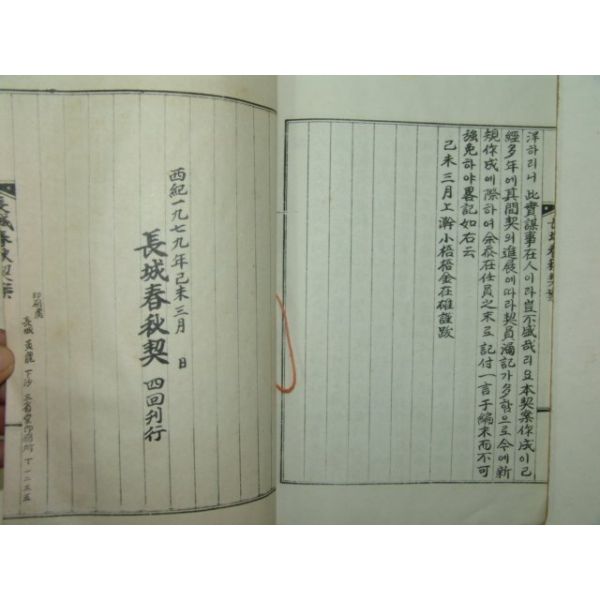 洋하리니 此實謀事在人이라 豈不盛哉리요 本契案作成이 已
經多年에 其間契의 進展에 따라 契員漏記가 多함으로 今에 新
規作成에 際하여 余忝在任員之末로 記付一言于編末而不可
強免하야 畧記如右云
己未三月上澣 小梧 金在確 謹跋
長城春秋契案
西紀一九七九年己未三月 日
長城春秋契 四回刊行
長城春秋契案
印刷處
長城 黃龍 下沙 三省堂印刷所 T 一二三五